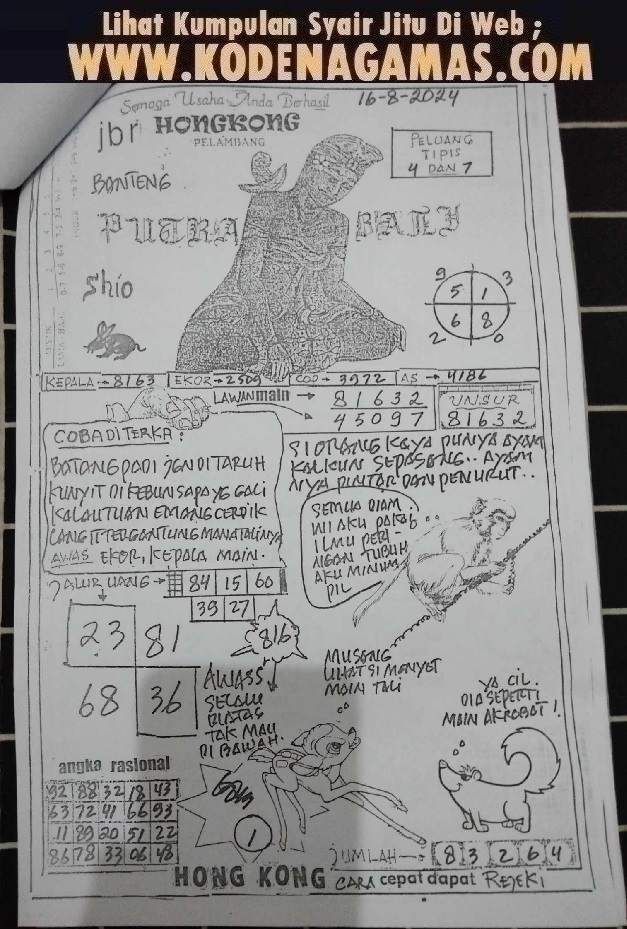 Lihat Kumpulan Syair Jitu Di Web ;
WWW.KODENAGAMAS.COM
Semoga Usaha Anda Berhasil
16-8-2024
jbr HONGKONG
PELAMBANG
PELUANG
TIPIS
4 DAN 7
BANTENG
PUTRA BALI
Shio
9 3
5 1
6 8
2 0
KEPALA → 8163 EKOR → 2509 COP → 3972 AS → 4186
LAWAN main →
81632
45097
UNSUR
81632
COBA DITERKA :
BATANG PADI JGN DI TARUH
KUNYIT DI KEBUN SAPA YG GALI
KALAU TUAN EMANG CERDIK
LANGIT TERGANTUNG MANA TALINYA
AWAS EKOR, KEPALA MAIN.
SI ORANG KAYA PUNYA AYAM
KALKUN SEPASANG.. AYAM
NYA PINTAR DAN PENURUT..
SEMUA DIAM..
INI AKU PAKAB..
ILMU PERI-
NGAN TUBUH
AKU MINUM
PIL
JALUR UANG → 84 15 60
39 27
816
23 81
68 36
AWASS
SELALU
DIATAS
TAK MAU
DI BAWAH.
MUSANG
LIHAT SI MONYET
MAIN TALI
YA CIL.
DIA SEPERTI
MAIN AKROBAT !
angka rasional
92 88 32 18 43
63 72 41 66 93
11 89 20 51 22
86 78 33 06 48
1
JUMLAH → 8 3 2 6 4
HONG KONG CARA cepat dapat REJEKI